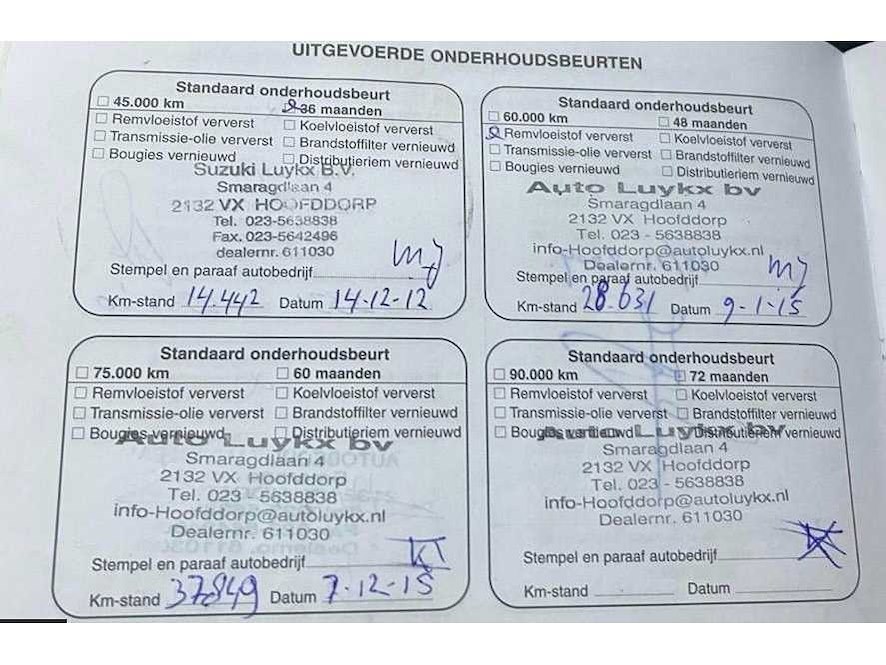 UITGEVOERDE ONDERHOUDSBEURTEN
Standaard onderhoudsbeurt
45.000 km 36 maanden
Remvloeistof ververst Koelvloeistof ververst
Transmissie-olie ververst Brandstoffilter vernieuwd
Bougies vernieuwd Distributieriem vernieuwd
Suzuki Luykx B.V.
Smaragdlaan 4
2132 VX HOOFDDORP
Tel. 023-5638838
Fax. 023-5642496
dealernr. 611030
Stempel en paraaf autobedrijf
Km-stand 14.442 Datum 14-12-12
Standaard onderhoudsbeurt
60.000 km 48 maanden
Remvloeistof ververst Koelvloeistof ververst
Transmissie-olie ververst Brandstoffilter vernieuwd
Bougies vernieuwd Distributieriem vernieuwd
Auto Luykx bv
Smaragdlaan 4
2132 VX Hoofddorp
Tel. 023 - 5638838
info-Hoofddorp@autoluykx.nl
Dealernr. 611030
Stempel en paraaf autobedrijf
Km-stand 28.631 Datum 9-1-15
Standaard onderhoudsbeurt
75.000 km 60 maanden
Remvloeistof ververst Koelvloeistof ververst
Transmissie-olie ververst Brandstoffilter vernieuwd
Bougies vernieuwd Distributieriem vernieuwd
Auto Luykx bv
Smaragdlaan 4
2132 VX Hoofddorp
Tel. 023 - 5638838
info-Hoofddorp@autoluykx.nl
Dealernr. 611030
Stempel en paraaf autobedrijf
Km-stand 37849 Datum 7-12-15
Standaard onderhoudsbeurt
90.000 km 72 maanden
Remvloeistof ververst Koelvloeistof ververst
Transmissie-olie ververst Brandstoffilter vernieuwd
Bougies vernieuwd Distributieriem vernieuwd
Auto Luykx bv
Smaragdlaan 4
2132 VX Hoofddorp
Tel. 023 - 5638838
info-Hoofddorp@autoluykx.nl
Dealernr. 611030
Stempel en paraaf autobedrijf
Km-stand Datum